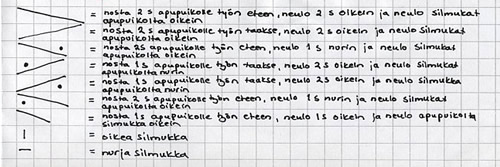 = nosta 2 s apupuikolle työn eteen, neulo 2 s oikein ja neulo silmukat
apupuikolta oikein
= nosta 2 s apupuikolle työn taakse, neulo 2 s oikein ja neulo silmukat
apupuikolta oikein
= nosta 2s apupuikolle työn eteen, neulo 1 s nurin ja neulo silmukat
apupuikolta oikein
= nosta 1 s apupuikolle työn taakse, neulo 2 s oikein ja neulo silmukat
apupuikolta nurin
= nosta 1 s apupuikolle työn taakse, neulo 2 s oikein ja neulo silmukka
apupuikolta nurin
= nosta 2 s apupuikolle työn eteen, neulo 1 s nurin ja neulo silmukat
apupuikolta oikein
= nosta 1 s apupuikolle työn eteen, neulo 1 s oikein ja neulo apupuikolta
silmukka oikein
= oikea silmukka
= nurja silmukka